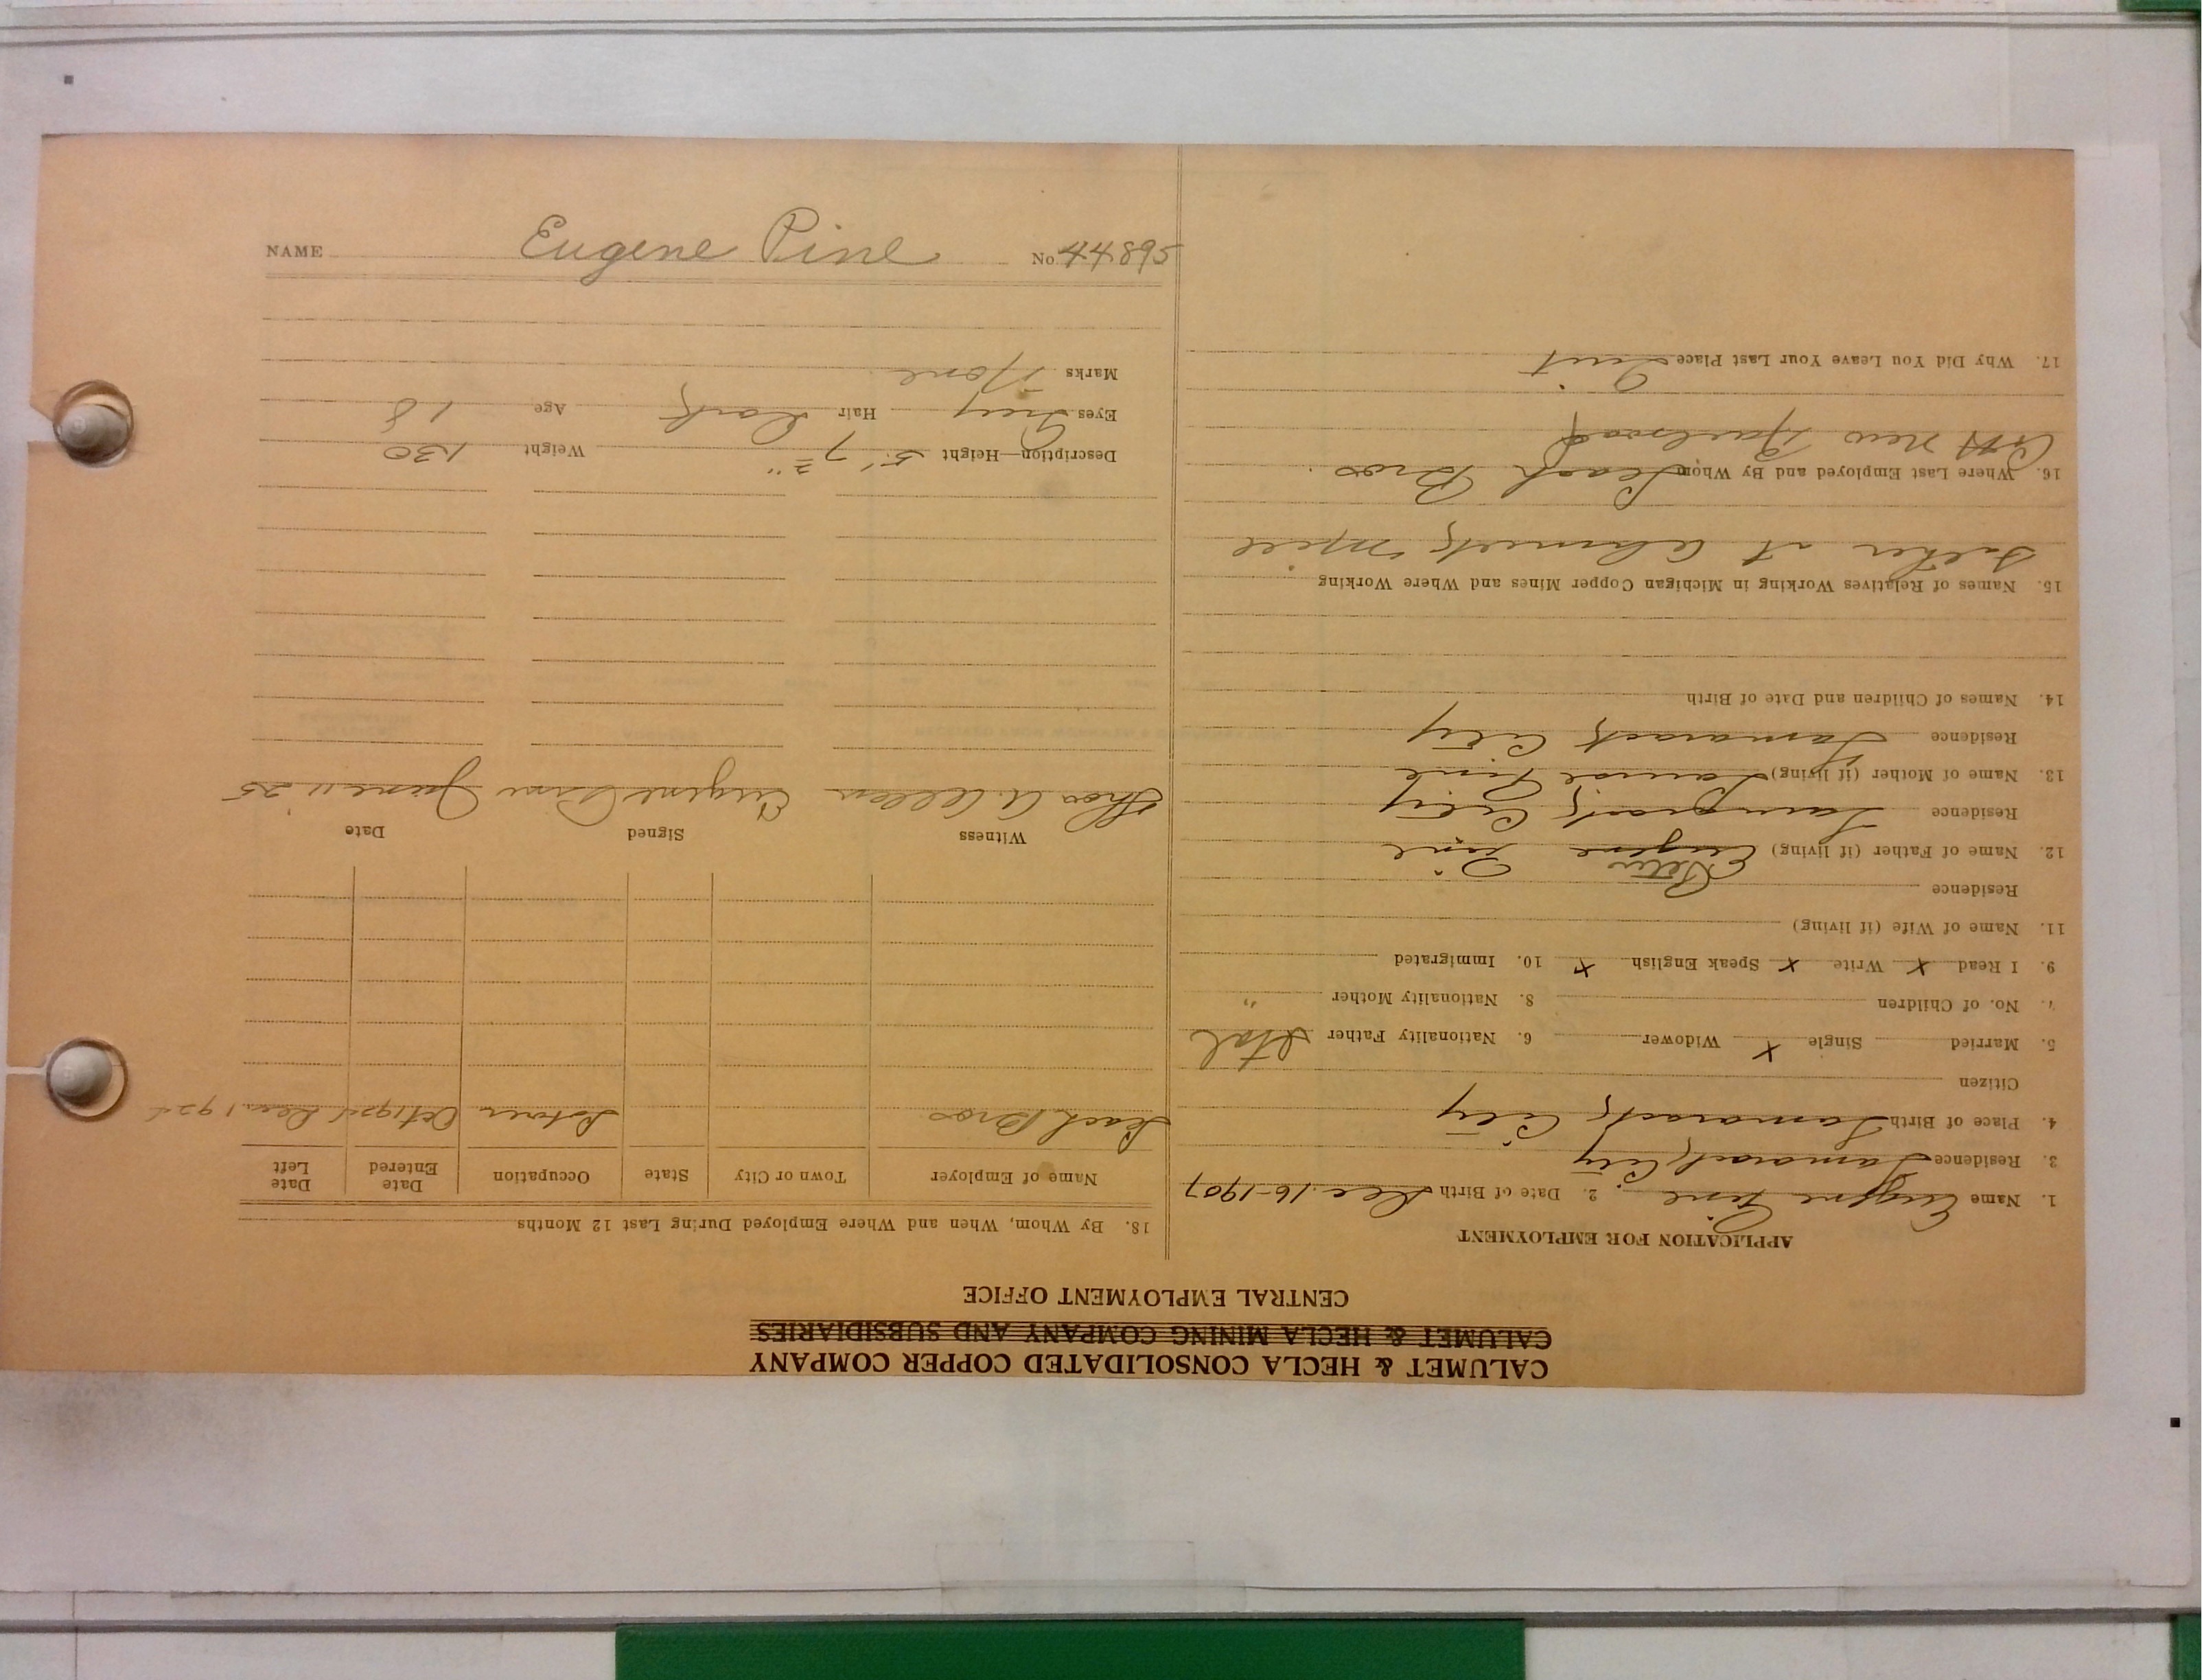 CALUMET & HECLA CONSOLIDATED COPPER COMPANY
CALUMET & HECLA MINING COMPANY AND SUBSIDIARIES
CENTRAL EMPLOYMENT OFFICE
APPLICATION FOR EMPLOYMENT
1. Name Eugene Pine 2. Date of Birth Dec. 16-1907
3. Residence Tamarack City
4. Place of Birth Tamarack City
Citizen
5. Married Single X Widower 6. Nationality Father Ital
7. No. of Children 8. Nationality Mother "
9. I Read X Write X Speak English X 10. Immigrated
11. Name of Wife (if living)
Residence
12. Name of Father (if living) Eugene Peter Pine
Residence Tamarack City
13. Name of Mother (if living) Louise Pine
Residence Tamarack City
14. Names of Children and Date of Birth
15. Names of Relatives Working in Michigan Copper Mines and Where Working
Father at Ahmeek Mill
16. Where Last Employed and By Whom Leach Bros.
New Railroad
17. Why Did You Leave Your Last Place Quit
18. By Whom, When and Where Employed During Last 12 Months
Name of Employer Town or City State Occupation Date Entered Date Left
Leach Bros Oct 1924 Dec. 1924
Witness Signed Date
Thos A. Allen Eugene Pine June 11 25
Description—Height 5' 7 2" Weight 130
Eyes Grey Hair Dark Age 18
Marks None
NAME Eugene Pine No. 44895